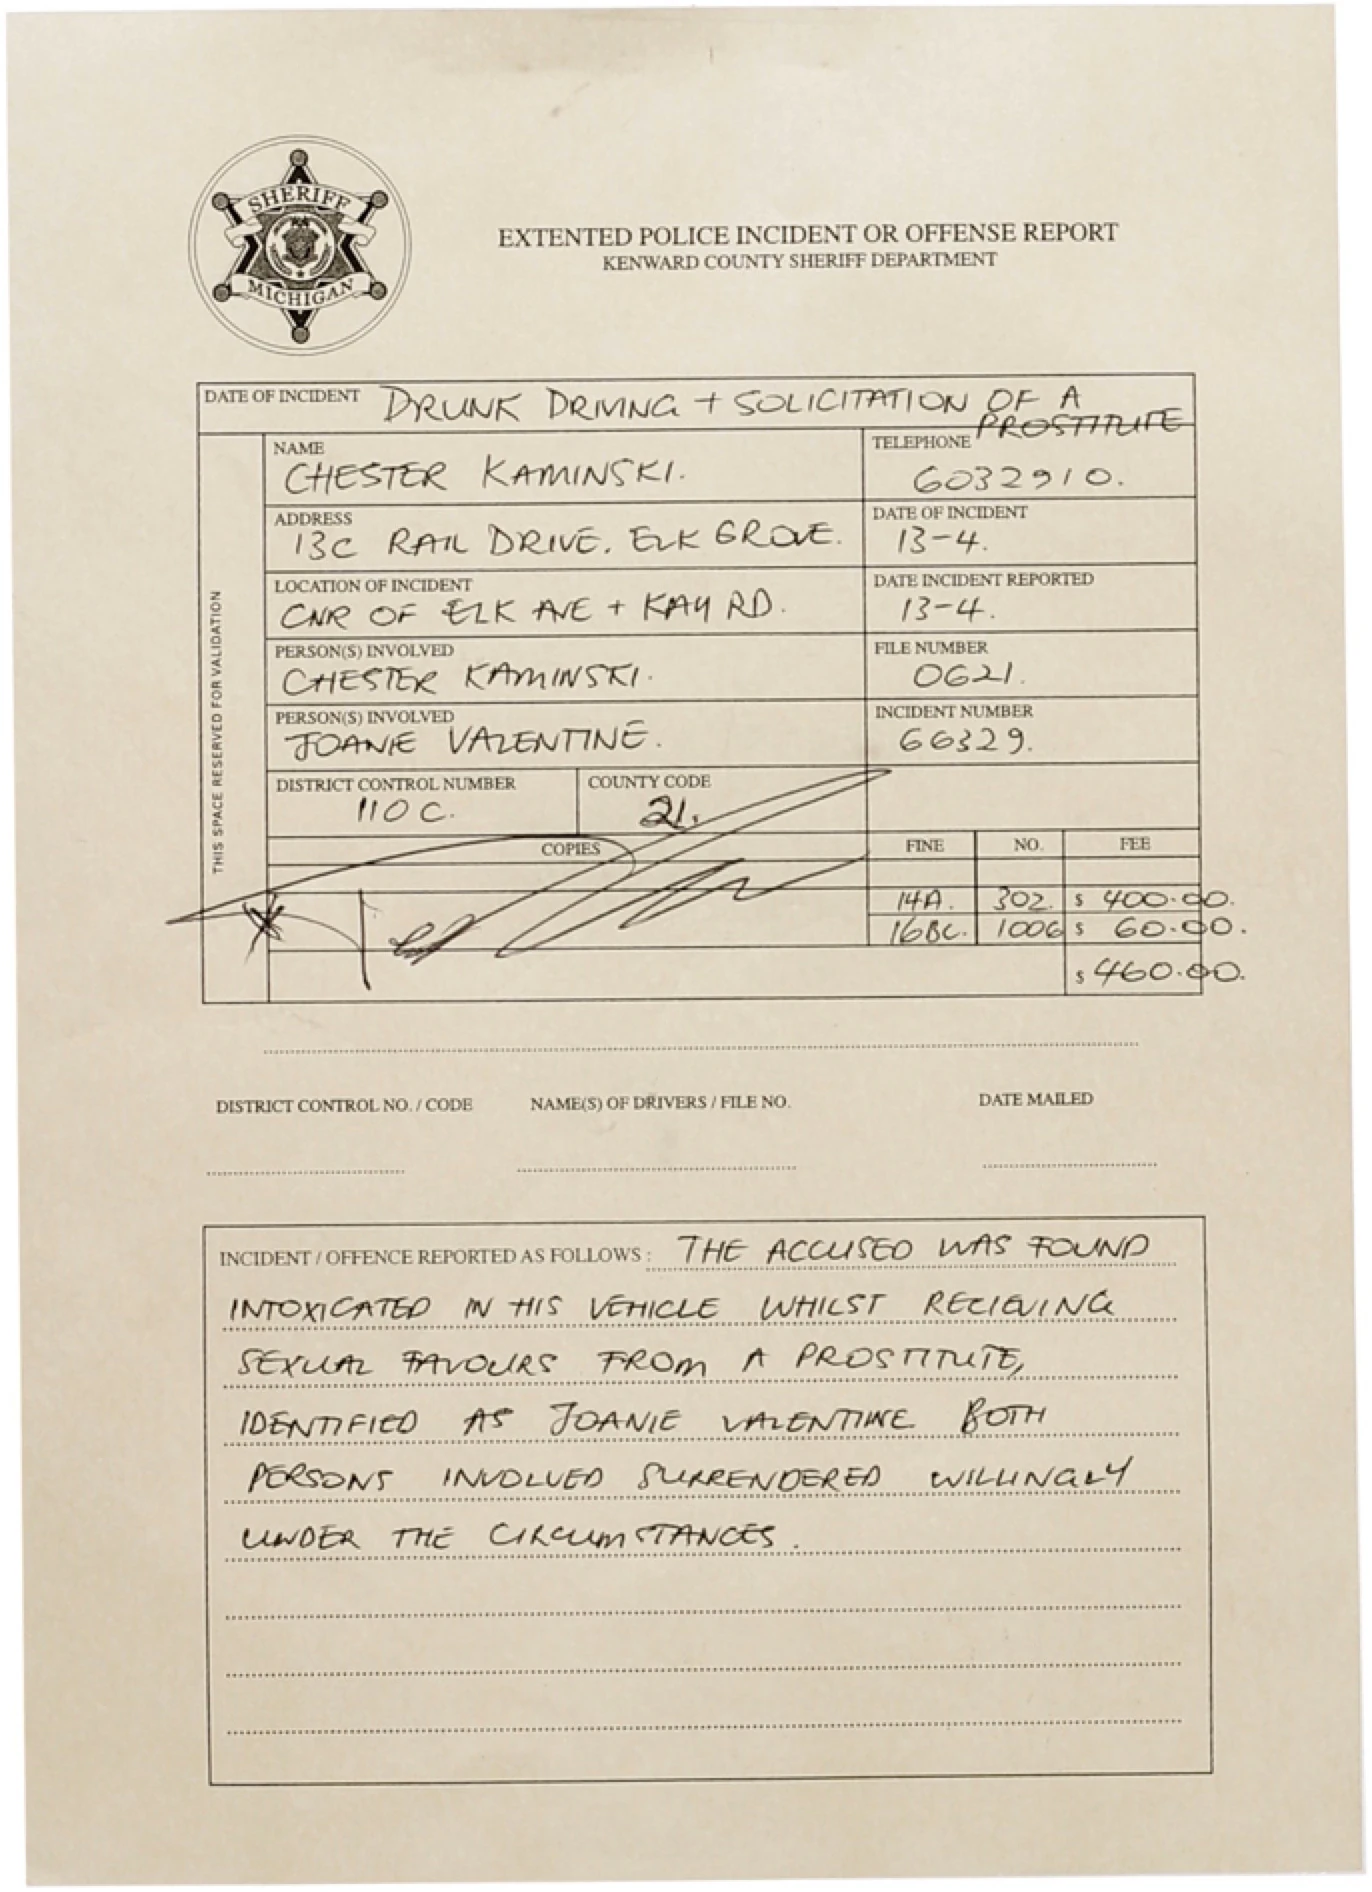 SHERIFF
MICHIGAN
EXTENTED POLICE INCIDENT OR OFFENSE REPORT
KENWARD COUNTY SHERIFF DEPARTMENT
DATE OF INCIDENT DRUNK DRIVING + SOLICITATION OF A PROSTITUTE
THIS SPACE RESERVED FOR VALIDATION
NAME
CHESTER KAMINSKI.
TELEPHONE
6032910.
ADDRESS
13C RAIL DRIVE. ELK GROVE.
DATE OF INCIDENT
13-4.
LOCATION OF INCIDENT
CNR OF ELK AVE + KAY RD.
DATE INCIDENT REPORTED
13-4.
PERSON(S) INVOLVED
CHESTER KAMINSKI.
FILE NUMBER
0621.
PERSON(S) INVOLVED
JOANIE VALENTINE.
INCIDENT NUMBER
66329.
DISTRICT CONTROL NUMBER
110C.
COUNTY CODE
21.
COPIES
FINE NO. FEE
14A. 302. $ 400.00.
16BC. 1006 $ 60.00.
$ 460.00.
DISTRICT CONTROL NO. / CODE NAME(S) OF DRIVERS / FILE NO. DATE MAILED
INCIDENT / OFFENCE REPORTED AS FOLLOWS : THE ACCUSED WAS FOUND
INTOXICATED IN HIS VEHICLE WHILST RECIEVING
SEXUAL FAVOURS FROM A PROSTITUTE,
IDENTIFIED AS JOANIE VALENTINE BOTH
PERSONS INVOLVED SURRENDERED WILLINGLY
UNDER THE CIRCUMSTANCES.